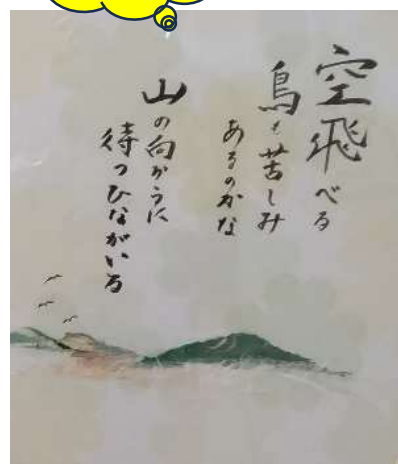 空飛べる
鳥も苦しみ
あるのかな
山の向かうに
待つひながいる